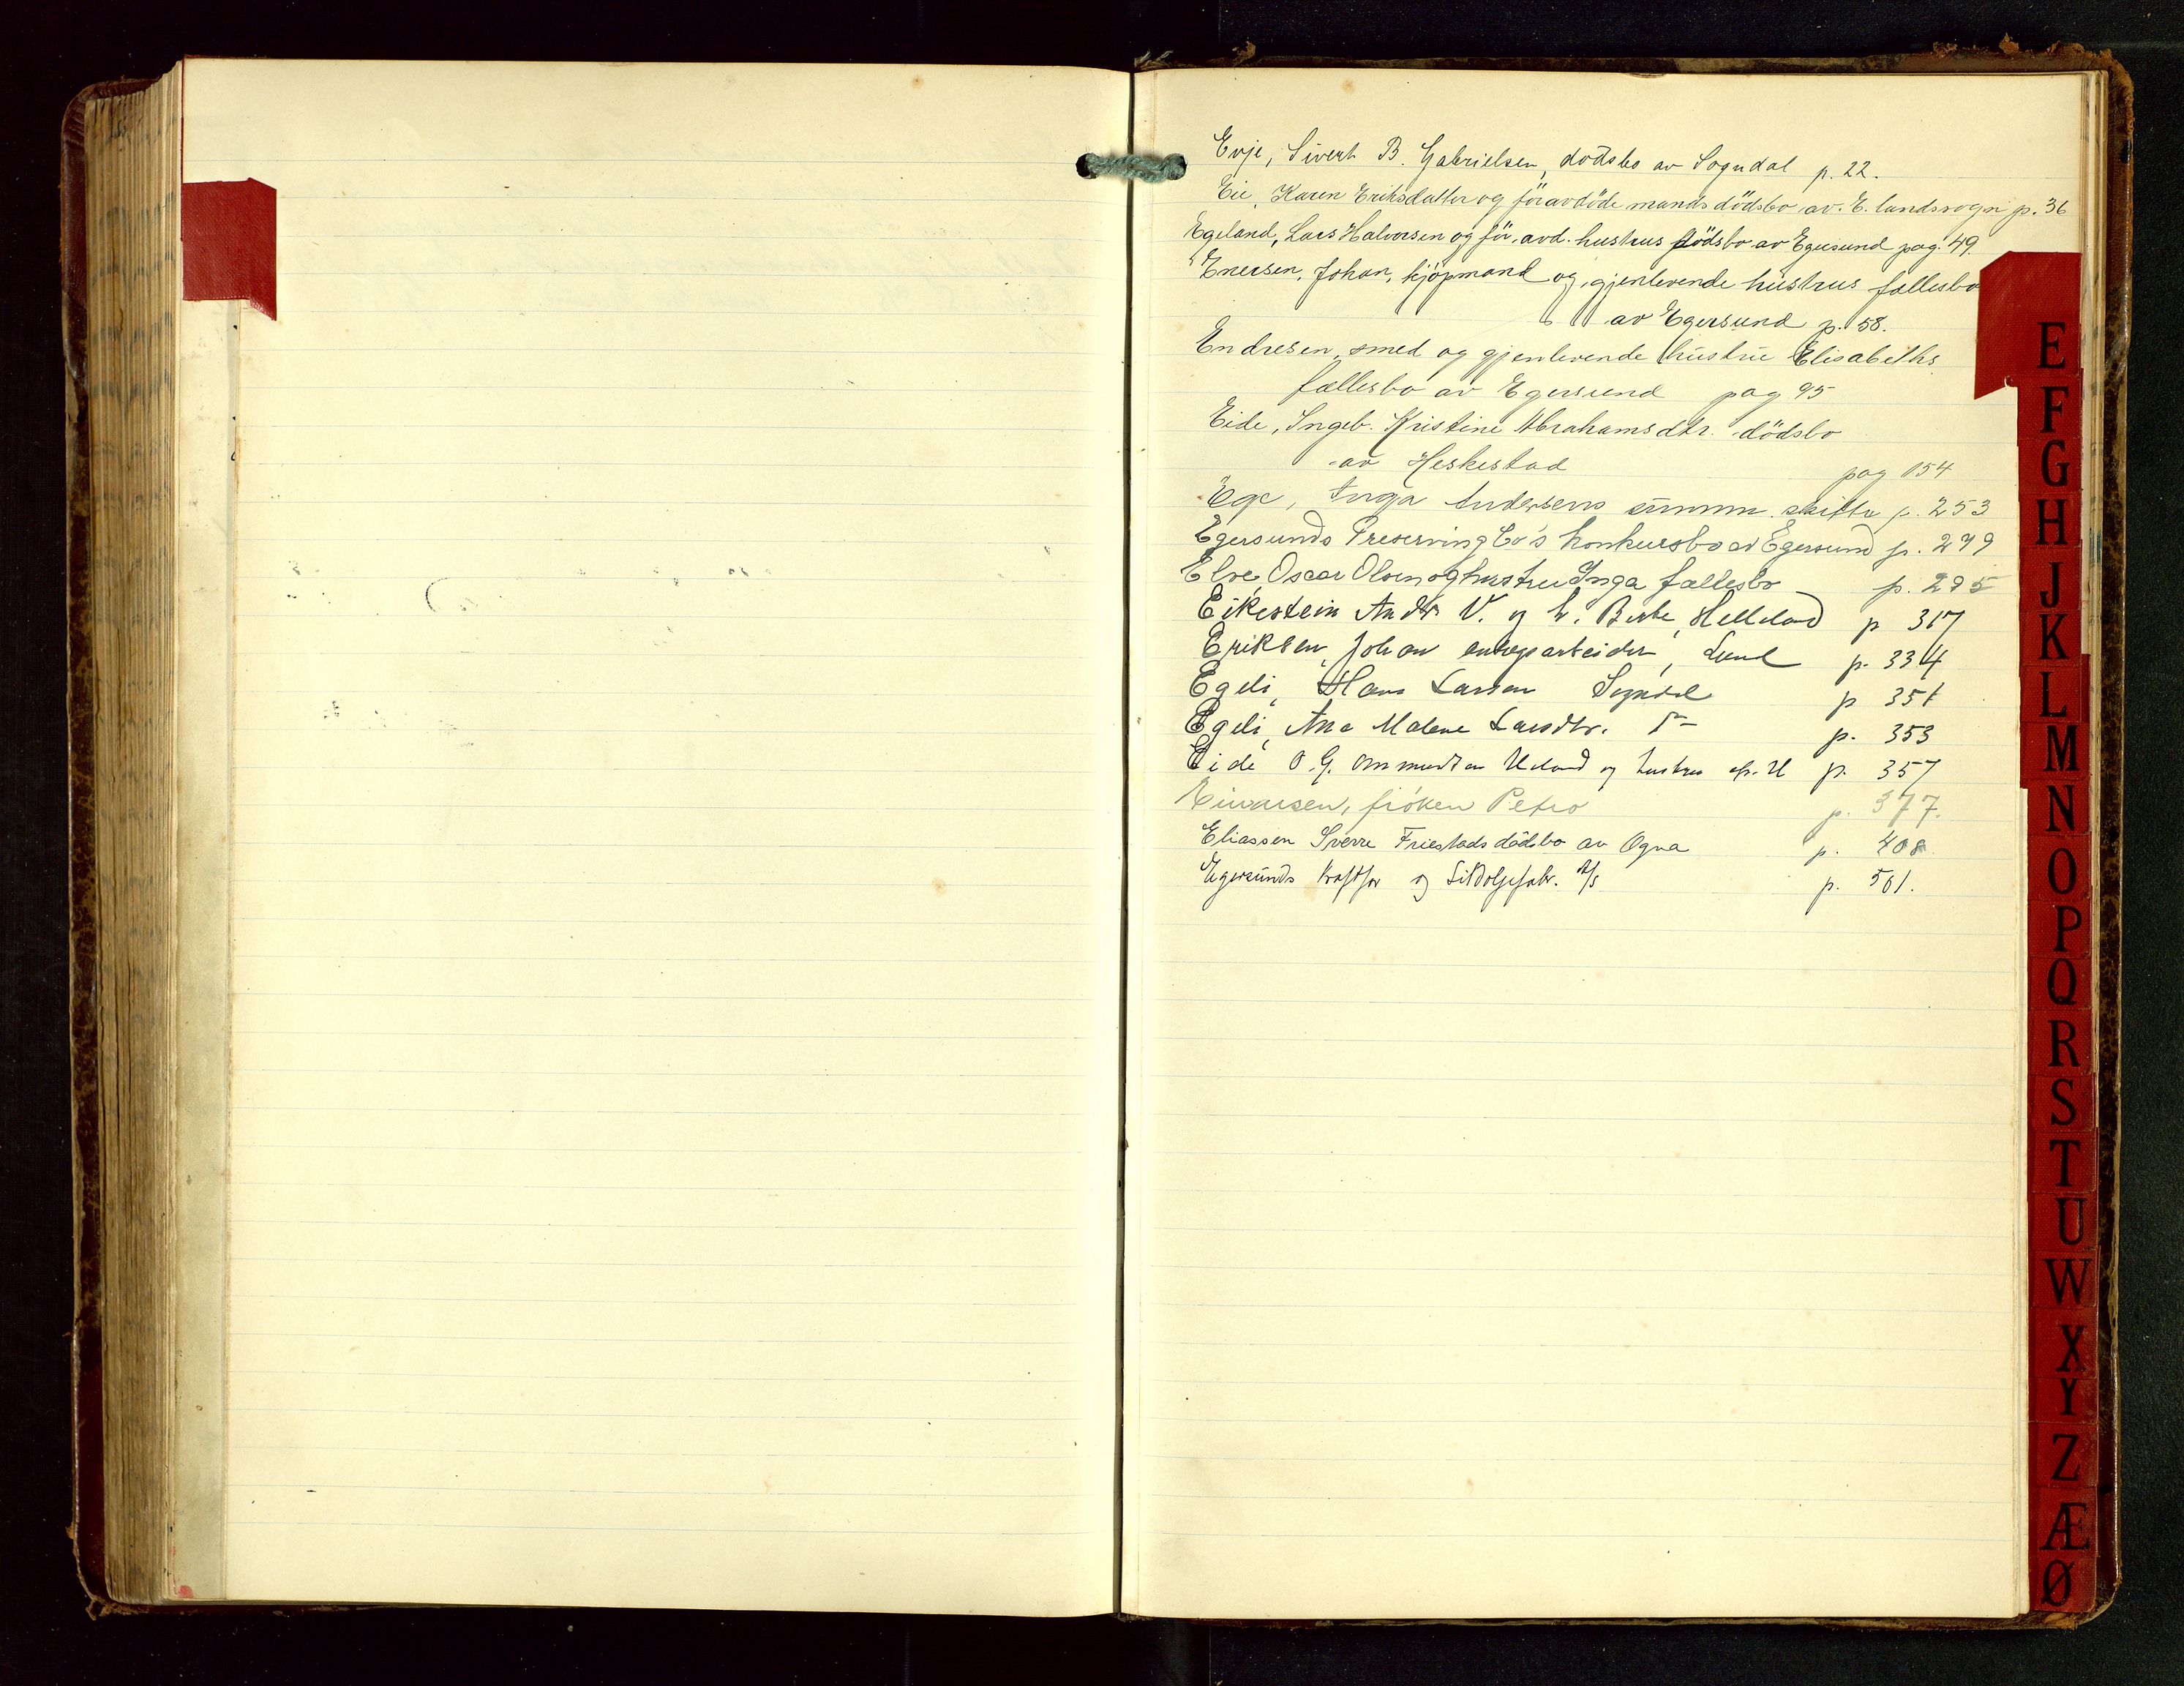 Evje, Sivert B. Gabrielsen, dödsbo av Sogndal p. 22.
Eie, Karen Eriksdatter og föravdöde mands dödsbo av E. landssogn p. 36
Egeland, Lars Halvorsen og för. avd. hustrus dödsbo av Egersund pag. 49.
Enersen, Johan, kjöpmand og gjenlevende hustrus fællesbo
av Egersund p. 58.
Endresen, smed og gjenlevende hustru Elisabeths
fællesbo av Egersund pag 95
Eide, Ingeb. Kristine Abrahamsdtr. dödsbo
av Heskestad pag 154
Ege, Inga Andersens summ. skifte p. 253
Egersunds Preserving Co's konkursbo av Egersund p. 299
Elve, Oscar Olsen og hustru Inga fællesbo p. 295
Eikestein Andr V. og h. Berte, Helleland p 317
Eriksen, Johan anlegsarbeider, Lund p. 334
Egeli, Hans Larsen Sogndal p 351
Egeli, Ana Malene Larsdtr. p. 353
Eide O. G. Ommundsen Ueland og hustru p. 357
Eivarsen, fröken Petro p. 377.
Eliassen Sverre Friestads dødsbo av Ogna p. 408
Egersunds kraftfor og Sildoljefabr. A/S p. 501.
E
F
G
H
J
K
L
M
N
O
P
Q
R
S
T
U
W
X
Y
Z
Æ
Ø